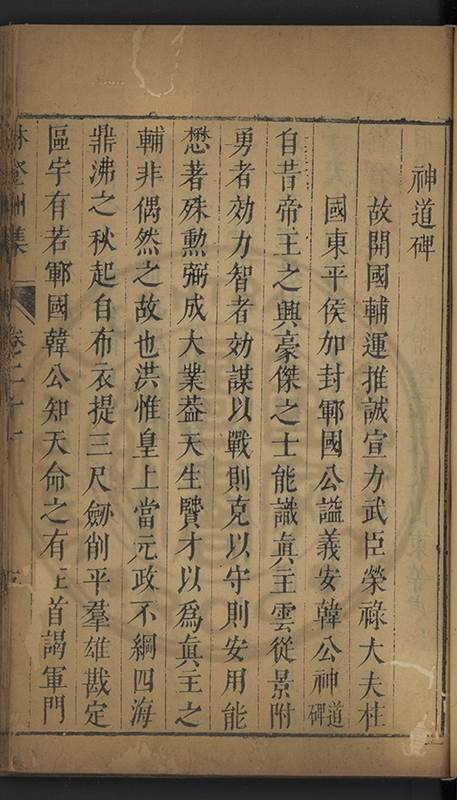 神道碑
故開國輔運推誠宣力武臣榮祿大夫柱
國東平侯加封鄆國公謚義安韓公神道碑
自昔帝王之興豪傑之士能識眞主雲從景附
勇者効力智者効謀以戰則克以守則安用能
懋著殊勳弼成大業葢天生賢才以爲眞主之
輔非偶然之故也洪惟皇上當元政不綱四海
鼎沸之秋起自布衣提三尺劒削平羣雄戡定
區宇有若鄆國韓公知天命之有主首謁軍門
林登州集 卷二十一